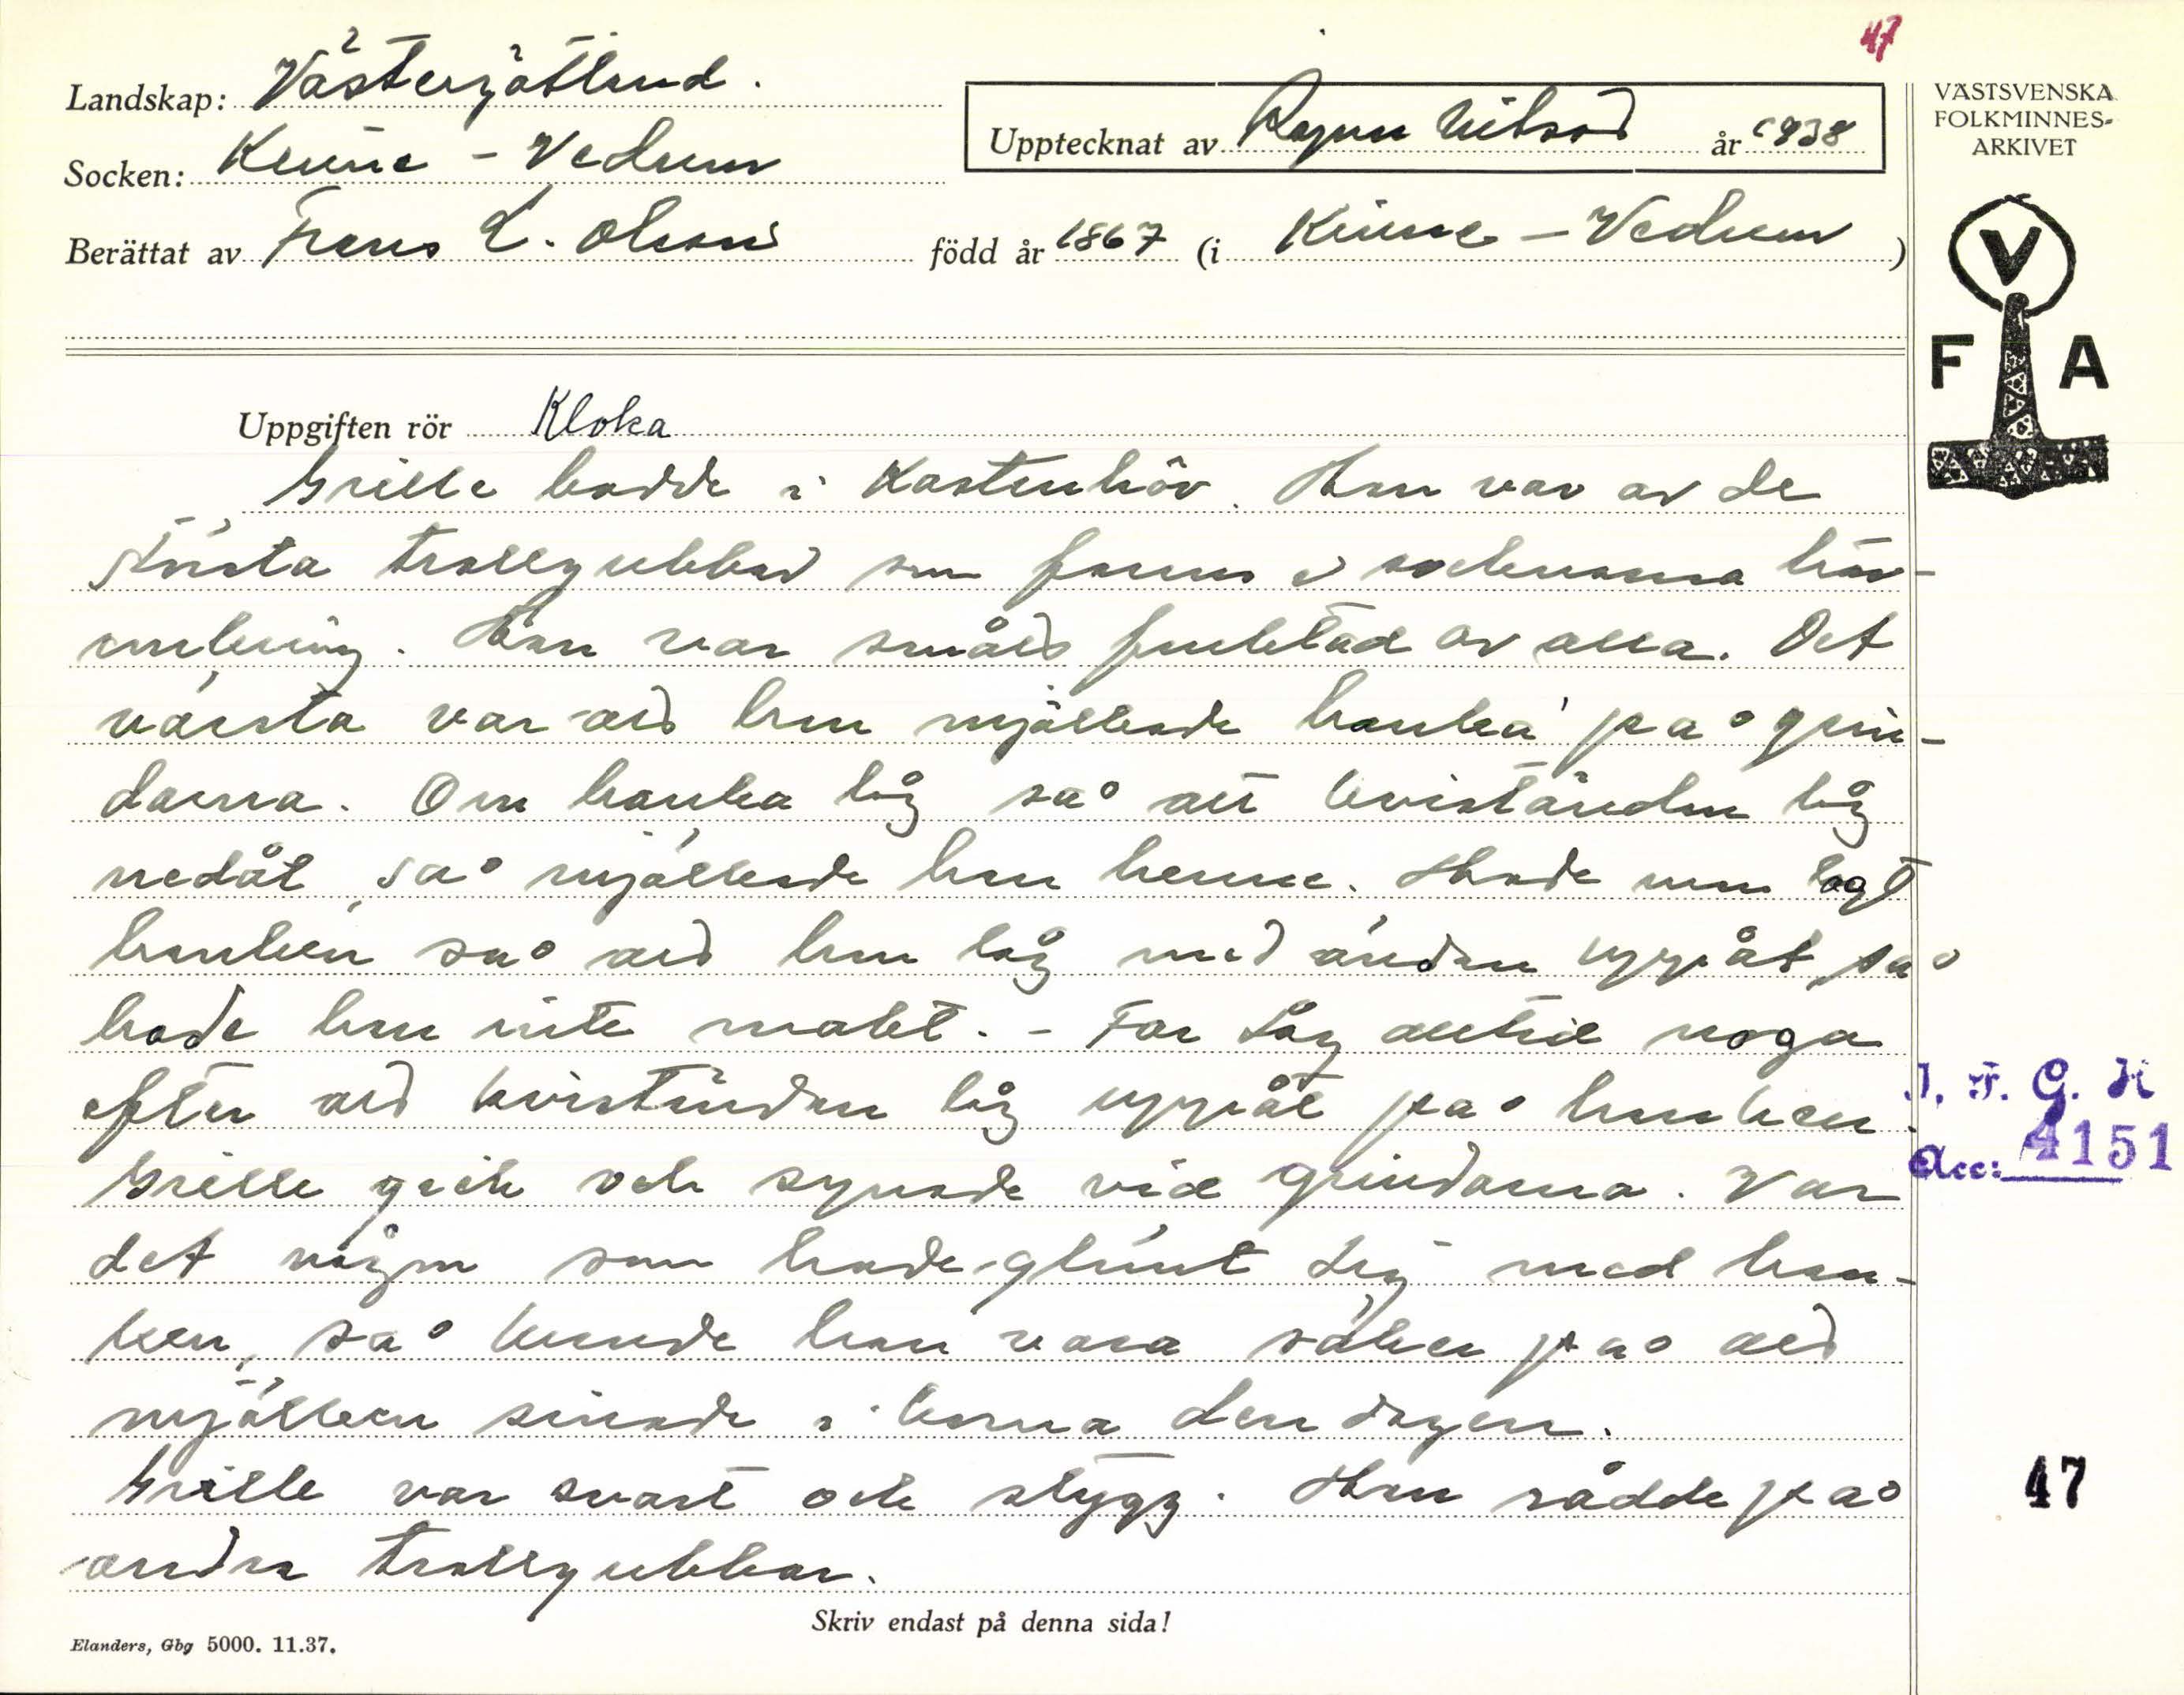 47
Landskap: Västergötland.
Socken: Kinne-Vedum
Upptecknat av Ragnar Nilsson år 1938
Berättat av Frans L. Olsson född år 1867 (i Kinne-Vedum)
VÄSTSVENSKA
FOLKMINNES-
ARKIVET
V
F A
Uppgiften rör Kloka
Grille bodde i Kastenhöv. Han var av de
största trollgubbar som fanns i socknarna här-
omkring. Han var fruktad av alla. Det
värsta var att han mjölkade hanka på grin-
darna. Om hanka låg så att kviständan låg
nedåt, så mjölkade han henne. Hade man lagt
hanken så att han låg med ändan uppåt, så
hade han inte makt. - Far såg alltid noga
efter att kviständan låg uppåt på hanken.
Grille gick och synade vid grindarna. Var
det någon som hade glömt sig med han-
ken, så kunde han vara säker på att
mjölken sinade i korna den dagen.
Grille var svart och stygg. Han rådde på
andra trollgubbar.
I. F. G. H
Acc: 4151
47
Skriv endast på denna sida!
Elanders, Gbg 5000. 11.37.